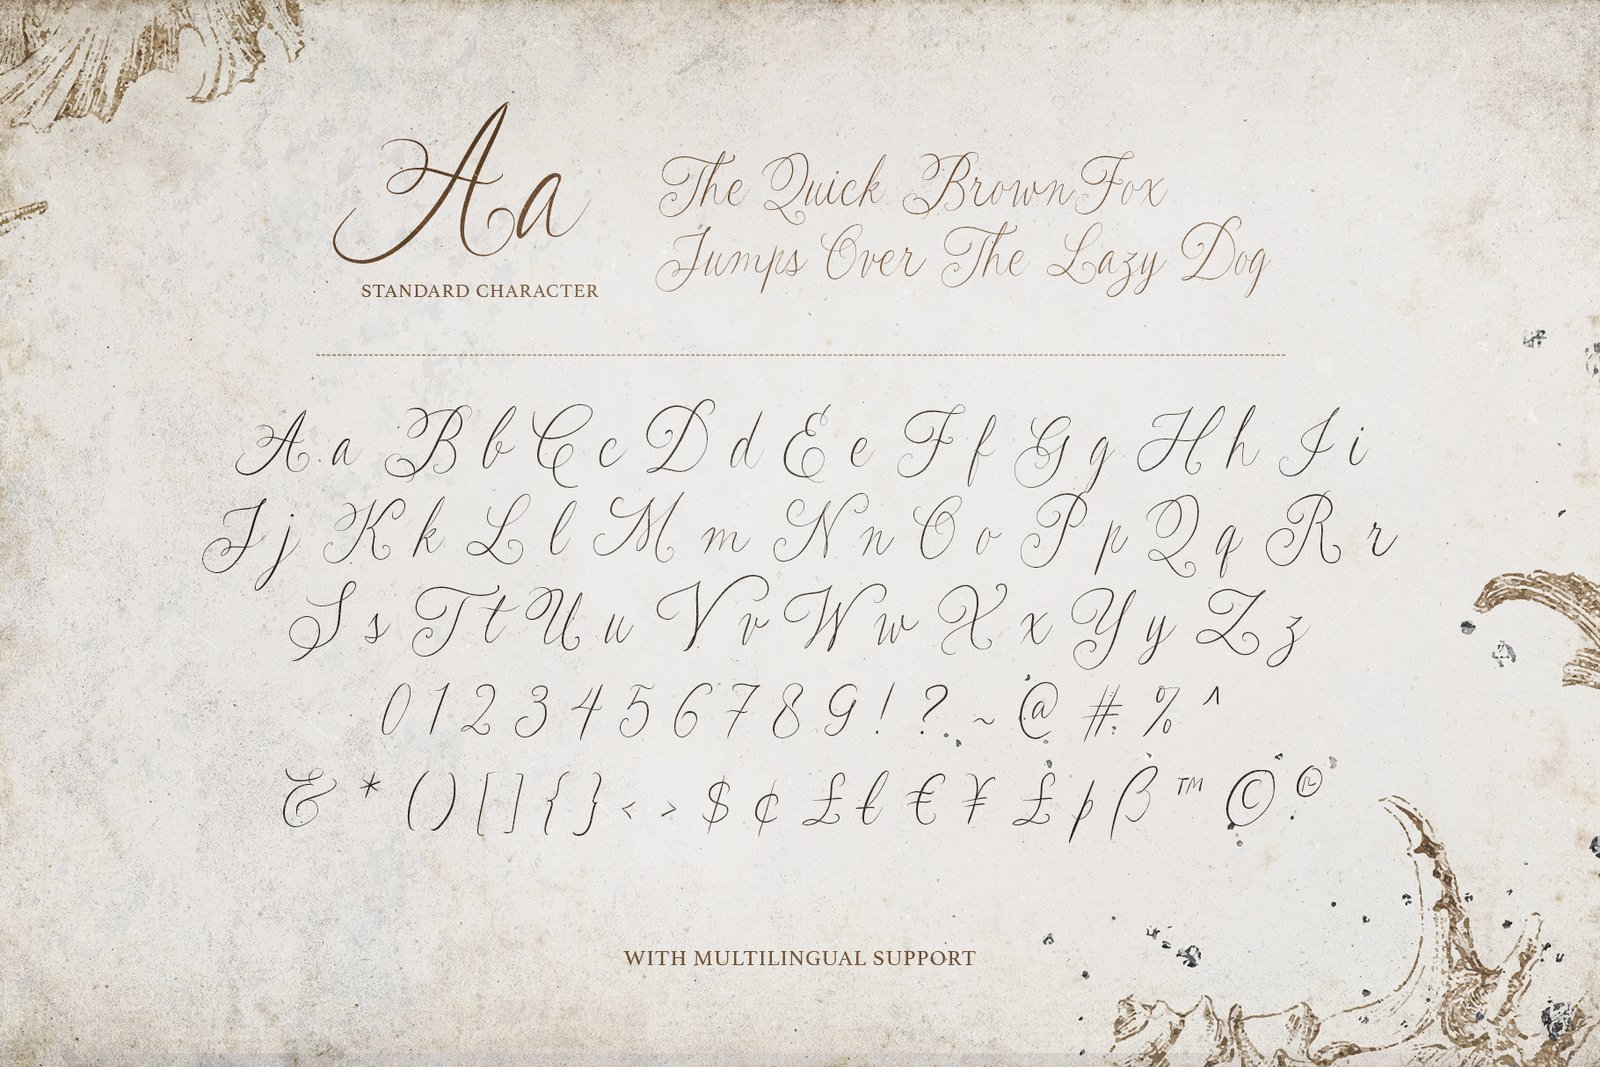 Aa
STANDARD CHARACTER
The Quick Brown Fox
Jumps Over The Lazy Dog
A a B b C c D d E e F f G g H h I i
J j K k L l M m N n O o P p Q q R r
S s T t U u V v W w X x Y y Z z
0 1 2 3 4 5 6 7 8 9 ! ? ~ @ # % ^
& * ( ) [ ] { } < > $ ¢ £ ł € ¥ £ þ ß ™ © ®
WITH MULTILINGUAL SUPPORT